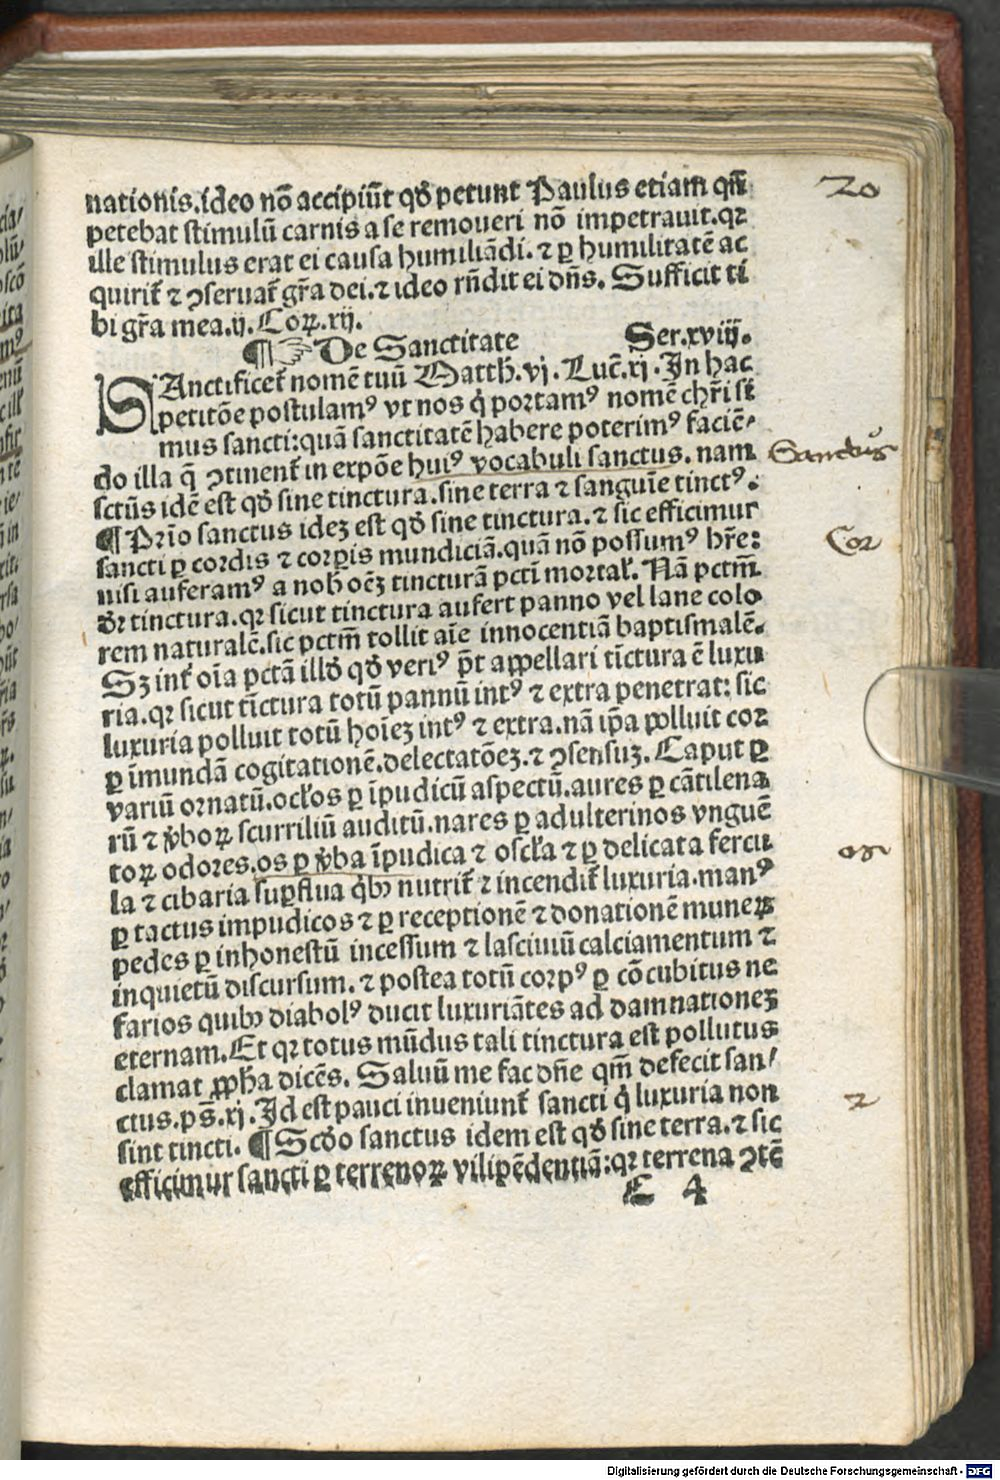 nationis.ideo nō accipiūt qđ petunt Paulus etiam qñ
petebat stimulū carnis a se remoueri nō impetrauit.qꝛ
ille stimulus erat ei causa humiliādi.⁊ ꝑ humilitatē ac
quirit̄ ⁊ ꝯseruat̄ gr̄a dei.⁊ ideo rn̄dit ei dn̄s. Sufficit ti
bi gr̄a mea.ij. Coꝝ.xij.
¶ ☞ De Sanctitate Ser.xviij.
SAnctificet̄ nomē tuū Matth̄.vj. Luc̄.xj. In hac
petitōe postulamꝰ vt nos q̇ portamꝰ nomē chr̄i si
mus sancti:quā sanctitatē habere poterimꝰ faciē-
do illa q̄ ꝯtinent̄ in expōe huiꝰ vocabuli sanctus. nam
sctūs idē est qđ sine tinctura.sine terra ⁊ sanguīe tinctꝰ.
¶ Pr̄io sanctus ideȝ est qđ sine tinctura.⁊ sic efficimur
sancti ꝑ cordis ⁊ corꝑis mundiciā.quā nō possumꝰ hr̄e:
nisi auferamꝰ a nob̄ oēȝ tincturā pctī mortal̄. Nā pctm̄
dr̄ tinctura.qꝛ sicut tinctura aufert panno vel lane colo
rem naturalē.sic pctm̄ tollit aīe innocentiā baptismalē.
Sȝ int̄ oīa pctā illđ qđ veriꝰ p̄t appellari tīctura ē luxu
ria.qꝛ sicut tīctura totū pannū intꝰ ⁊ extra penetrat: sic
luxuria polluit totū hoīeȝ intꝰ ⁊ extra.nā ip̄a polluit cor
ꝑ īmundā cogitationē.delectatōeȝ.⁊ ꝯsensuȝ. Caput ꝑ
variū ornatū.ocl̄os ꝑ īpudicū aspectū.aures ꝑ cātilena
rū ⁊ v̄boꝝ scurriliū auditū.nares ꝑ adulterinos vnguē
toꝝ odores.os ꝑ v̄ba īpudica ⁊ oscl̄a ⁊ ꝑ delicata fercu
la ⁊ cibaria suꝑflua q̇bꝰ nutrit̄ ⁊ incendit̄ luxuria.manꝰ
ꝑ tactus impudicos ⁊ ꝑ receptionē ⁊ donationē muneꝝ
pedes ꝑ inhonestū incessum ⁊ lasciuiū calciamentum ⁊
inquietū discursum.⁊ postea totū corpꝰ ꝑ cōcubitus ne
farios quibꝰ diabolꝰ ducit luxuriātes ad damnationeȝ
eternam. Et qꝛ totus mūdus tali tinctura est pollutus
clamat ꝓph̄a dicēs. Saluū me fac dn̄e qm̄ defecit san-
ctus.ps̄.xj. Id est pauci inueniunt̄ sancti q̇ luxuria non
sint tincti. ¶ Scđo sanctus idem est qđ sine terra.⁊ sic
efficimur sancti ꝑ terrenoꝝ vilipēdentiā:qꝛ terrena ꝯtē
C 4
20
Sanctus
Cor
os
2
Digitalisierung gefördert durch die Deutsche Forschungsgemeinschaft - DFG